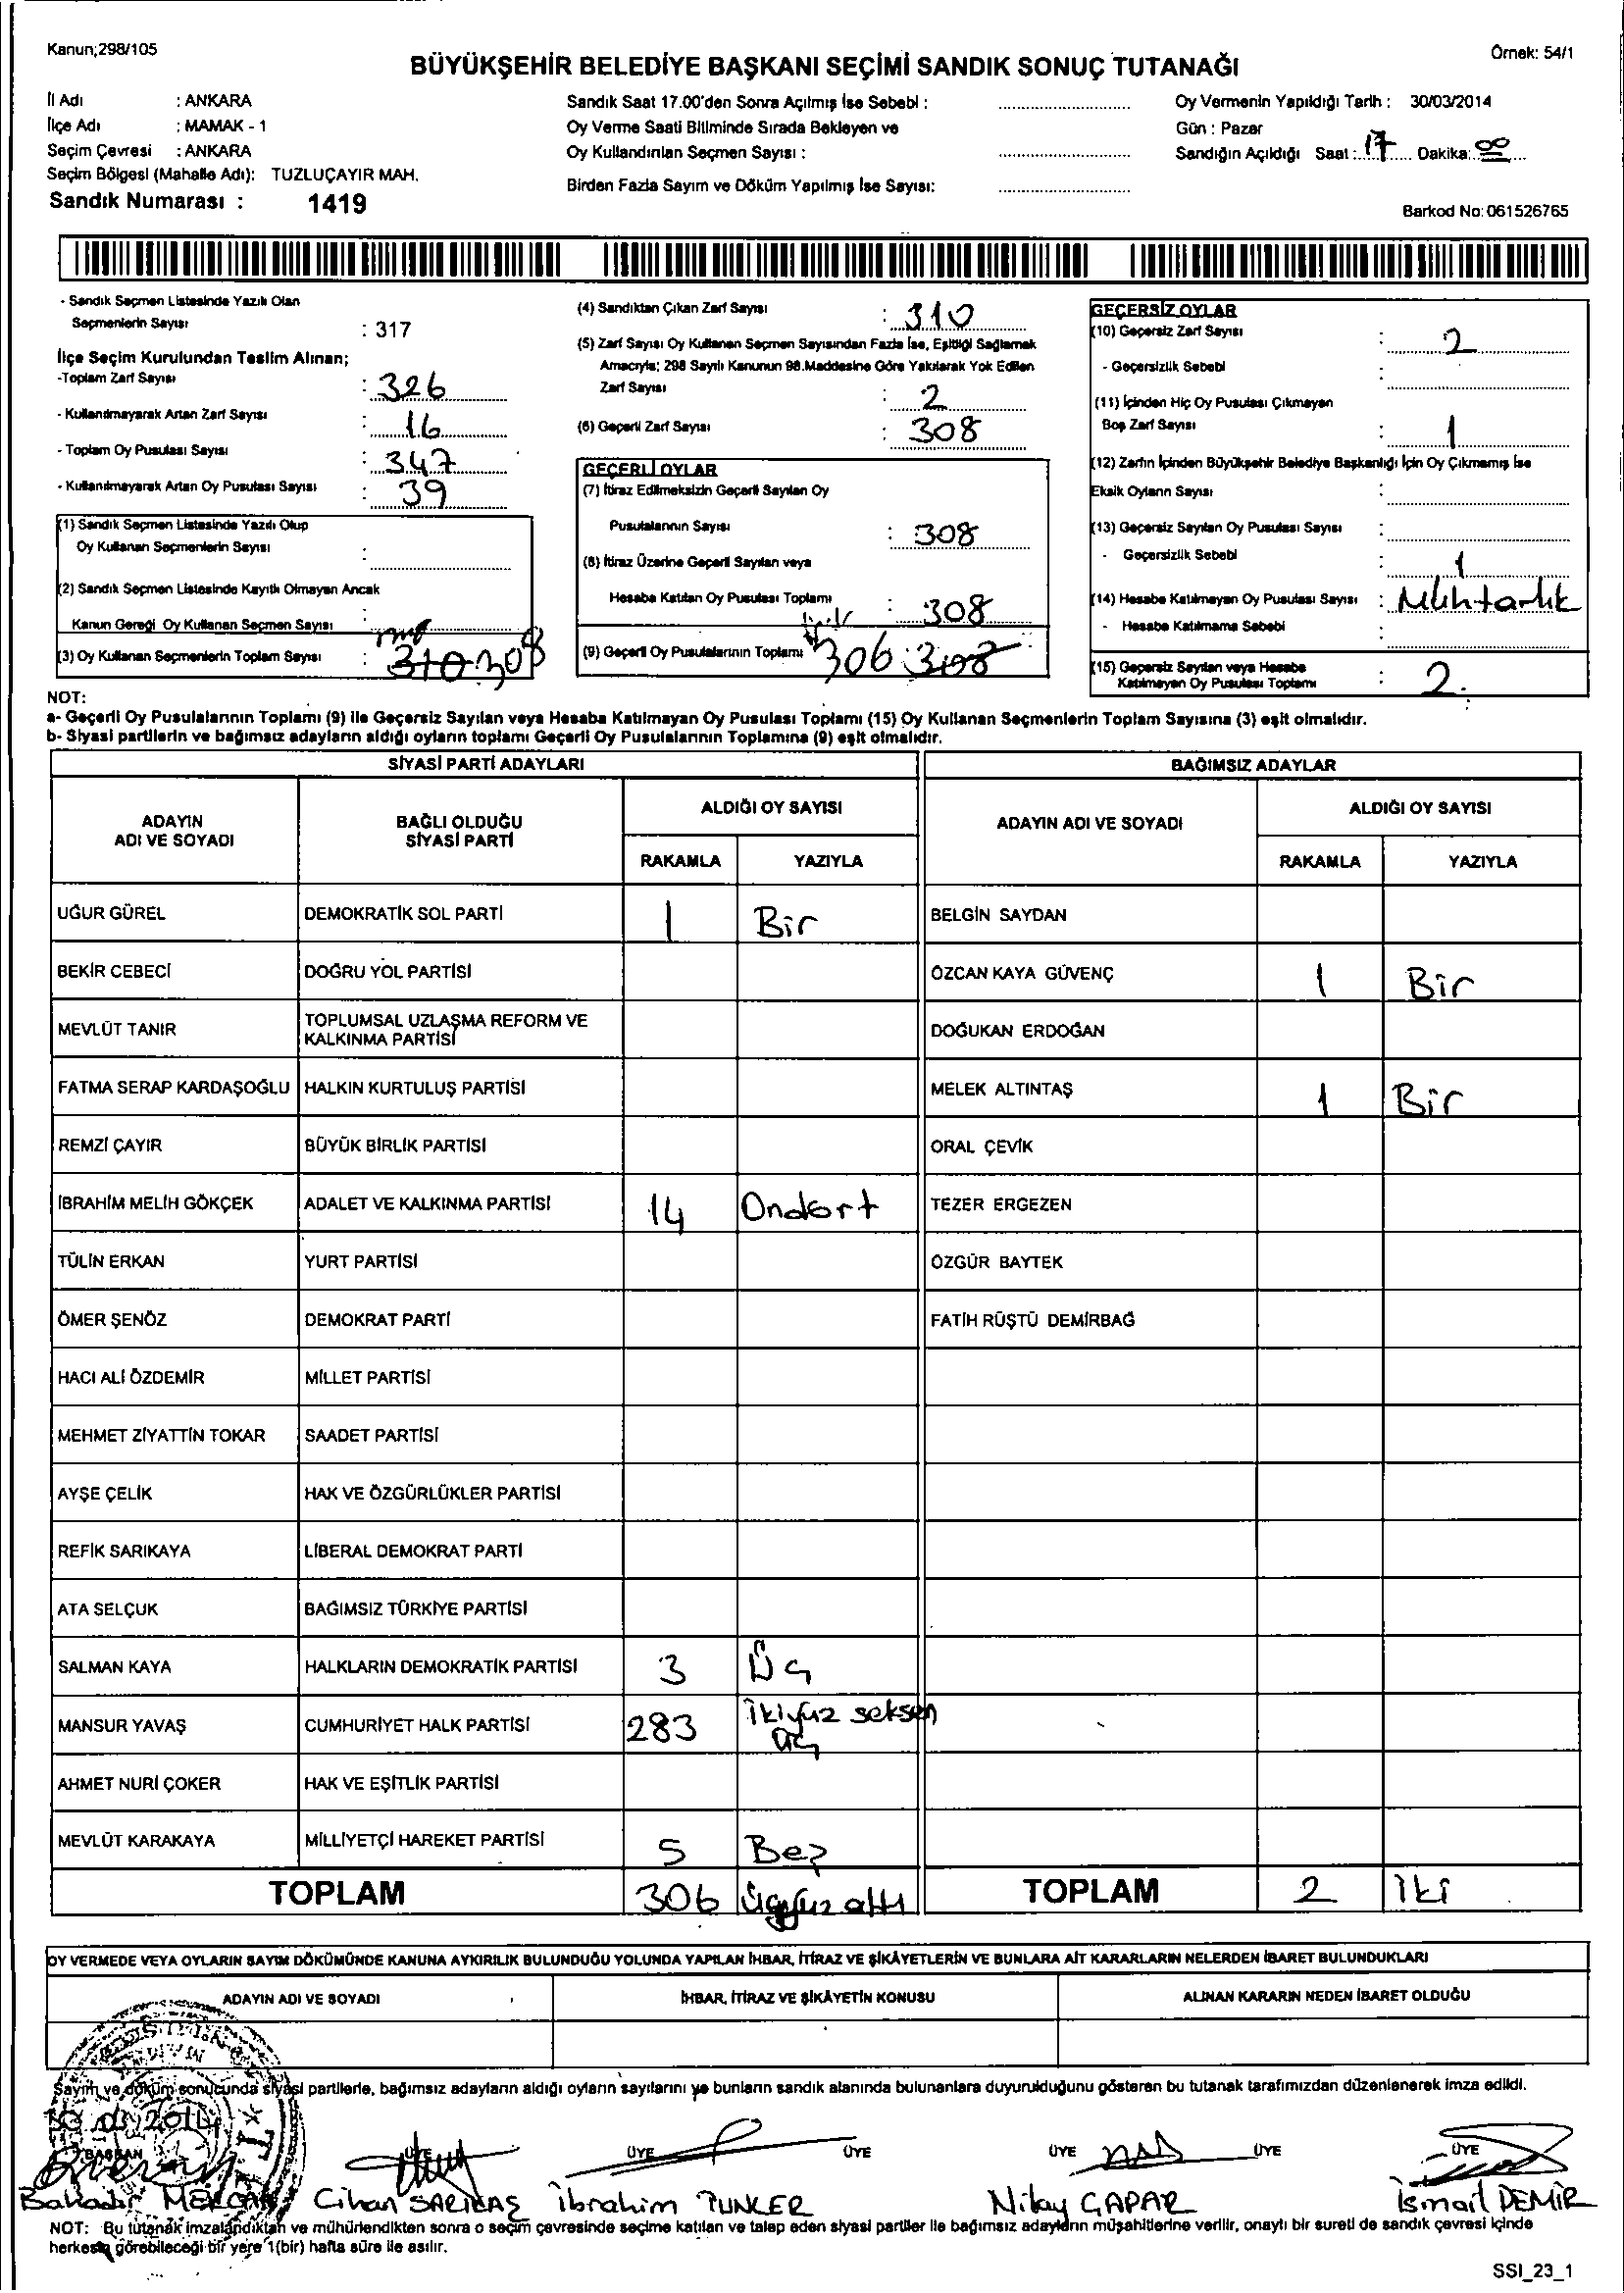 Kanun;298/105
Örnek: 54/1
BÜYÜKŞEHİR BELEDİYE BAŞKANI SEÇİMİ SANDIK SONUÇ TUTANAĞI
İl Adı : ANKARA
İlçe Adı : MAMAK - 1
Seçim Çevresi : ANKARA
Seçim Bölgesi (Mahalle Adı): TUZLUÇAYIR MAH.
Sandık Numarası : 1419
Sandık Saat 17.00'den Sonra Açılmış İse Sebebi :
Oy Verme Saati Bitiminde Sırada Bekleyen ve
Oy Kullandırılan Seçmen Sayısı :
Birden Fazla Sayım ve Döküm Yapılmış İse Sayısı:
Oy Vermenin Yapıldığı Tarih : 30/03/2014
Gün : Pazar
Sandığın Açıldığı Saat : 17 Dakika: 00
Barkod No: 061526765
- Sandık Seçmen Listesinde Yazılı Olan
Seçmenlerin Sayısı : 317
İlçe Seçim Kurulundan Teslim Alınan;
-Toplam Zarf Sayısı : 326
- Kullanılmayarak Artan Zarf Sayısı : 16
- Toplam Oy Pusulası Sayısı : 347
- Kullanılmayarak Artan Oy Pusulası Sayısı : 39
(1) Sandık Seçmen Listesinde Yazılı Olup
Oy Kullanan Seçmenlerin Sayısı :
(2) Sandık Seçmen Listesinde Kayıtlı Olmayan Ancak
Kanun Gereği Oy Kullanan Seçmen Sayısı :
(3) Oy Kullanan Seçmenlerin Toplam Sayısı : 310 308
(4) Sandıktan Çıkan Zarf Sayısı : 310
(5) Zarf Sayısı Oy Kullanan Seçmen Sayısından Fazla İse, Eşitliği Sağlamak
Amacıyla; 298 Sayılı Kanunun 98.Maddesine Göre Yakılarak Yok Edilen
Zarf Sayısı : 2
(6) Geçerli Zarf Sayısı : 308
GEÇERLİ OYLAR
(7) İtiraz Edilmeksizin Geçerli Sayılan Oy
Pusulalarının Sayısı : 308
(8) İtiraz Üzerine Geçerli Sayılan veya
Hesaba Katılan Oy Pusulası Toplamı : 308
(9) Geçerli Oy Pusulalarının Toplamı 306 : 308
GEÇERSİZ OYLAR
(10) Geçersiz Zarf Sayısı : 2
- Geçersizlik Sebebi :
(11) İçinden Hiç Oy Pusulası Çıkmayan
Boş Zarf Sayısı : 1
(12) Zarfın İçinden Büyükşehir Belediye Başkanlığı İçin Oy Çıkmamış İse
Eksik Oyların Sayısı :
(13) Geçersiz Sayılan Oy Pusulası Sayısı :
- Geçersizlik Sebebi : 1
(14) Hesaba Katılmayan Oy Pusulası Sayısı : Muhtarlık
- Hesaba Katılmama Sebebi :
(15) Geçersiz Sayılan veya Hesaba
Katılmayan Oy Pusulası Toplamı : 2
NOT:
a- Geçerli Oy Pusulalarının Toplamı (9) ile Geçersiz Sayılan veya Hesaba Katılmayan Oy Pusulası Toplamı (15) Oy Kullanan Seçmenlerin Toplam Sayısına (3) eşit olmalıdır.
b- Siyasi partilerin ve bağımsız adayların aldığı oyların toplamı Geçerli Oy Pusulalarının Toplamına (9) eşit olmalıdır.
SİYASİ PARTİ ADAYLARI
BAĞIMSIZ ADAYLAR
ADAYIN
ADI VE SOYADI
BAĞLI OLDUĞU
SİYASİ PARTİ
ALDIĞI OY SAYISI
RAKAMLA YAZIYLA
ADAYIN ADI VE SOYADI
ALDIĞI OY SAYISI
RAKAMLA YAZIYLA
UĞUR GÜREL DEMOKRATİK SOL PARTİ 1 Bir BELGİN SAYDAN
BEKİR CEBECİ DOĞRU YOL PARTİSİ ÖZCAN KAYA GÜVENÇ 1 Bir
MEVLÜT TANIR TOPLUMSAL UZLAŞMA REFORM VE
KALKINMA PARTİSİ DOĞUKAN ERDOĞAN
FATMA SERAP KARDAŞOĞLU HALKIN KURTULUŞ PARTİSİ MELEK ALTINTAŞ 1 Bir
REMZİ ÇAYIR BÜYÜK BİRLİK PARTİSİ ORAL ÇEVİK
İBRAHİM MELİH GÖKÇEK ADALET VE KALKINMA PARTİSİ 14 Ondört TEZER ERGEZEN
TÜLİN ERKAN YURT PARTİSİ ÖZGÜR BAYTEK
ÖMER ŞENÖZ DEMOKRAT PARTİ FATİH RÜŞTÜ DEMİRBAĞ
HACI ALİ ÖZDEMİR MİLLET PARTİSİ
MEHMET ZİYATTİN TOKAR SAADET PARTİSİ
AYŞE ÇELİK HAK VE ÖZGÜRLÜKLER PARTİSİ
REFİK SARIKAYA LİBERAL DEMOKRAT PARTİ
ATA SELÇUK BAĞIMSIZ TÜRKİYE PARTİSİ
SALMAN KAYA HALKLARIN DEMOKRATİK PARTİSİ 3 Üç
MANSUR YAVAŞ CUMHURİYET HALK PARTİSİ 283 İkiyüz seksen
üç
AHMET NURİ ÇOKER HAK VE EŞİTLİK PARTİSİ
MEVLÜT KARAKAYA MİLLİYETÇİ HAREKET PARTİSİ 5 Beş
TOPLAM 306 Üçyüz altı TOPLAM 2 İki
OY VERMEDE VEYA OYLARIN SAYIM DÖKÜMÜNDE KANUNA AYKIRILIK BULUNDUĞU YOLUNDA YAPILAN İHBAR, İTİRAZ VE ŞİKÂYETLERİN VE BUNLARA AİT KARARLARIN NELERDEN İBARET BULUNDUKLARI
ADAYIN ADI VE SOYADI İHBAR, İTİRAZ VE ŞİKÂYETİN KONUSU ALINAN KARARIN NEDEN İBARET OLDUĞU
Sayım ve döküm sonucunda siyasi partilerle, bağımsız adayların aldığı oyların sayılarını ve bunların sandık alanında bulunanlara duyurulduğunu gösteren bu tutanak tarafımızdan düzenlenerek imza edildi.
30.03.2014
BAŞKAN ÜYE ÜYE ÜYE ÜYE ÜYE ÜYE
Bahadır Cihan SARIBAŞ İbrahim TUNCER Nilay GAPAR İsmail DEMİR
NOT: Bu tutanak imzalandıktan ve mühürlendikten sonra o seçim çevresinde seçime katılan ve talep eden siyasi partiler ile bağımsız adayların müşahitlerine verilir, onaylı bir sureti de sandık çevresi içinde
herkesin görebileceği bir yere 1(bir) hafta süre ile asılır.
SSI_23_1